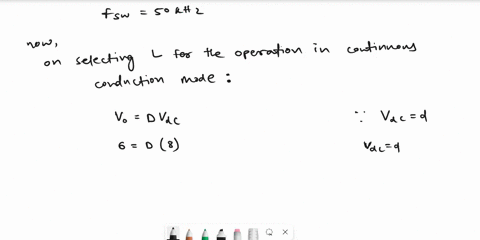 fsw = 50 kHz
now,
on selecting L for the operation in continuous
conduction mode :
Vo = D Vdc
∵ Vdc = d
6 = D (8)
Vdc = d